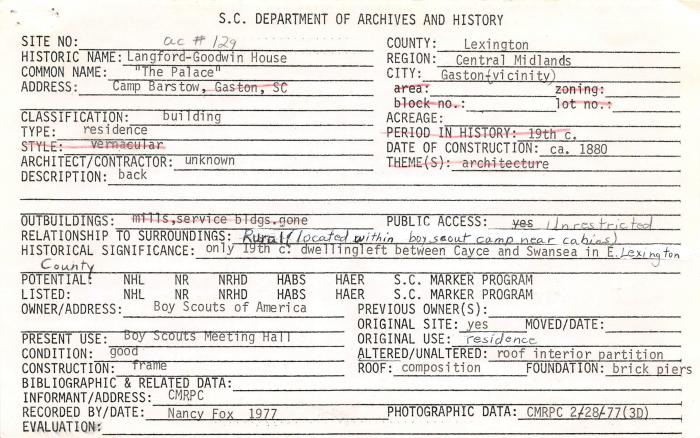 S.C. DEPARTMENT OF ARCHIVES AND HISTORY
SITE NO: ac # 129
HISTORIC NAME: Langford-Goodwin House
COMMON NAME: "The Palace"
ADDRESS: Camp Barstow, Gaston, SC
COUNTY: Lexington
REGION: Central Midlands
CITY: Gaston(vicinity)
area: zoning:
block no.: lot no.:
CLASSIFICATION: building
TYPE: residence
STYLE: vernacular
ARCHITECT/CONTRACTOR: unknown
DESCRIPTION: back
ACREAGE:
PERIOD IN HISTORY: 19th c.
DATE OF CONSTRUCTION: ca. 1880
THEME(S): architecture
OUTBUILDINGS: mills,service bldgs.gone PUBLIC ACCESS: yes Unrestricted
RELATIONSHIP TO SURROUNDINGS: Rural (located within boy scout camp near cabins)
HISTORICAL SIGNIFICANCE: only 19th c. dwellingleft between Cayce and Swansea in E. Lexington
County
POTENTIAL: NHL NR NRHD HABS HAER S.C. MARKER PROGRAM
LISTED: NHL NR NRHD HABS HAER S.C. MARKER PROGRAM
OWNER/ADDRESS: Boy Scouts of America
PREVIOUS OWNER(S):
ORIGINAL SITE: yes MOVED/DATE:
PRESENT USE: Boy Scouts Meeting Hall
ORIGINAL USE: residence
CONDITION: good
ALTERED/UNALTERED: roof interior partition
CONSTRUCTION: frame
ROOF: composition FOUNDATION: brick piers
BIBLIOGRAPHIC & RELATED DATA:
INFORMANT/ADDRESS: CMRPC
RECORDED BY/DATE: Nancy Fox 1977 PHOTOGRAPHIC DATA: CMRPC 2/28/77(3D)
EVALUATION: